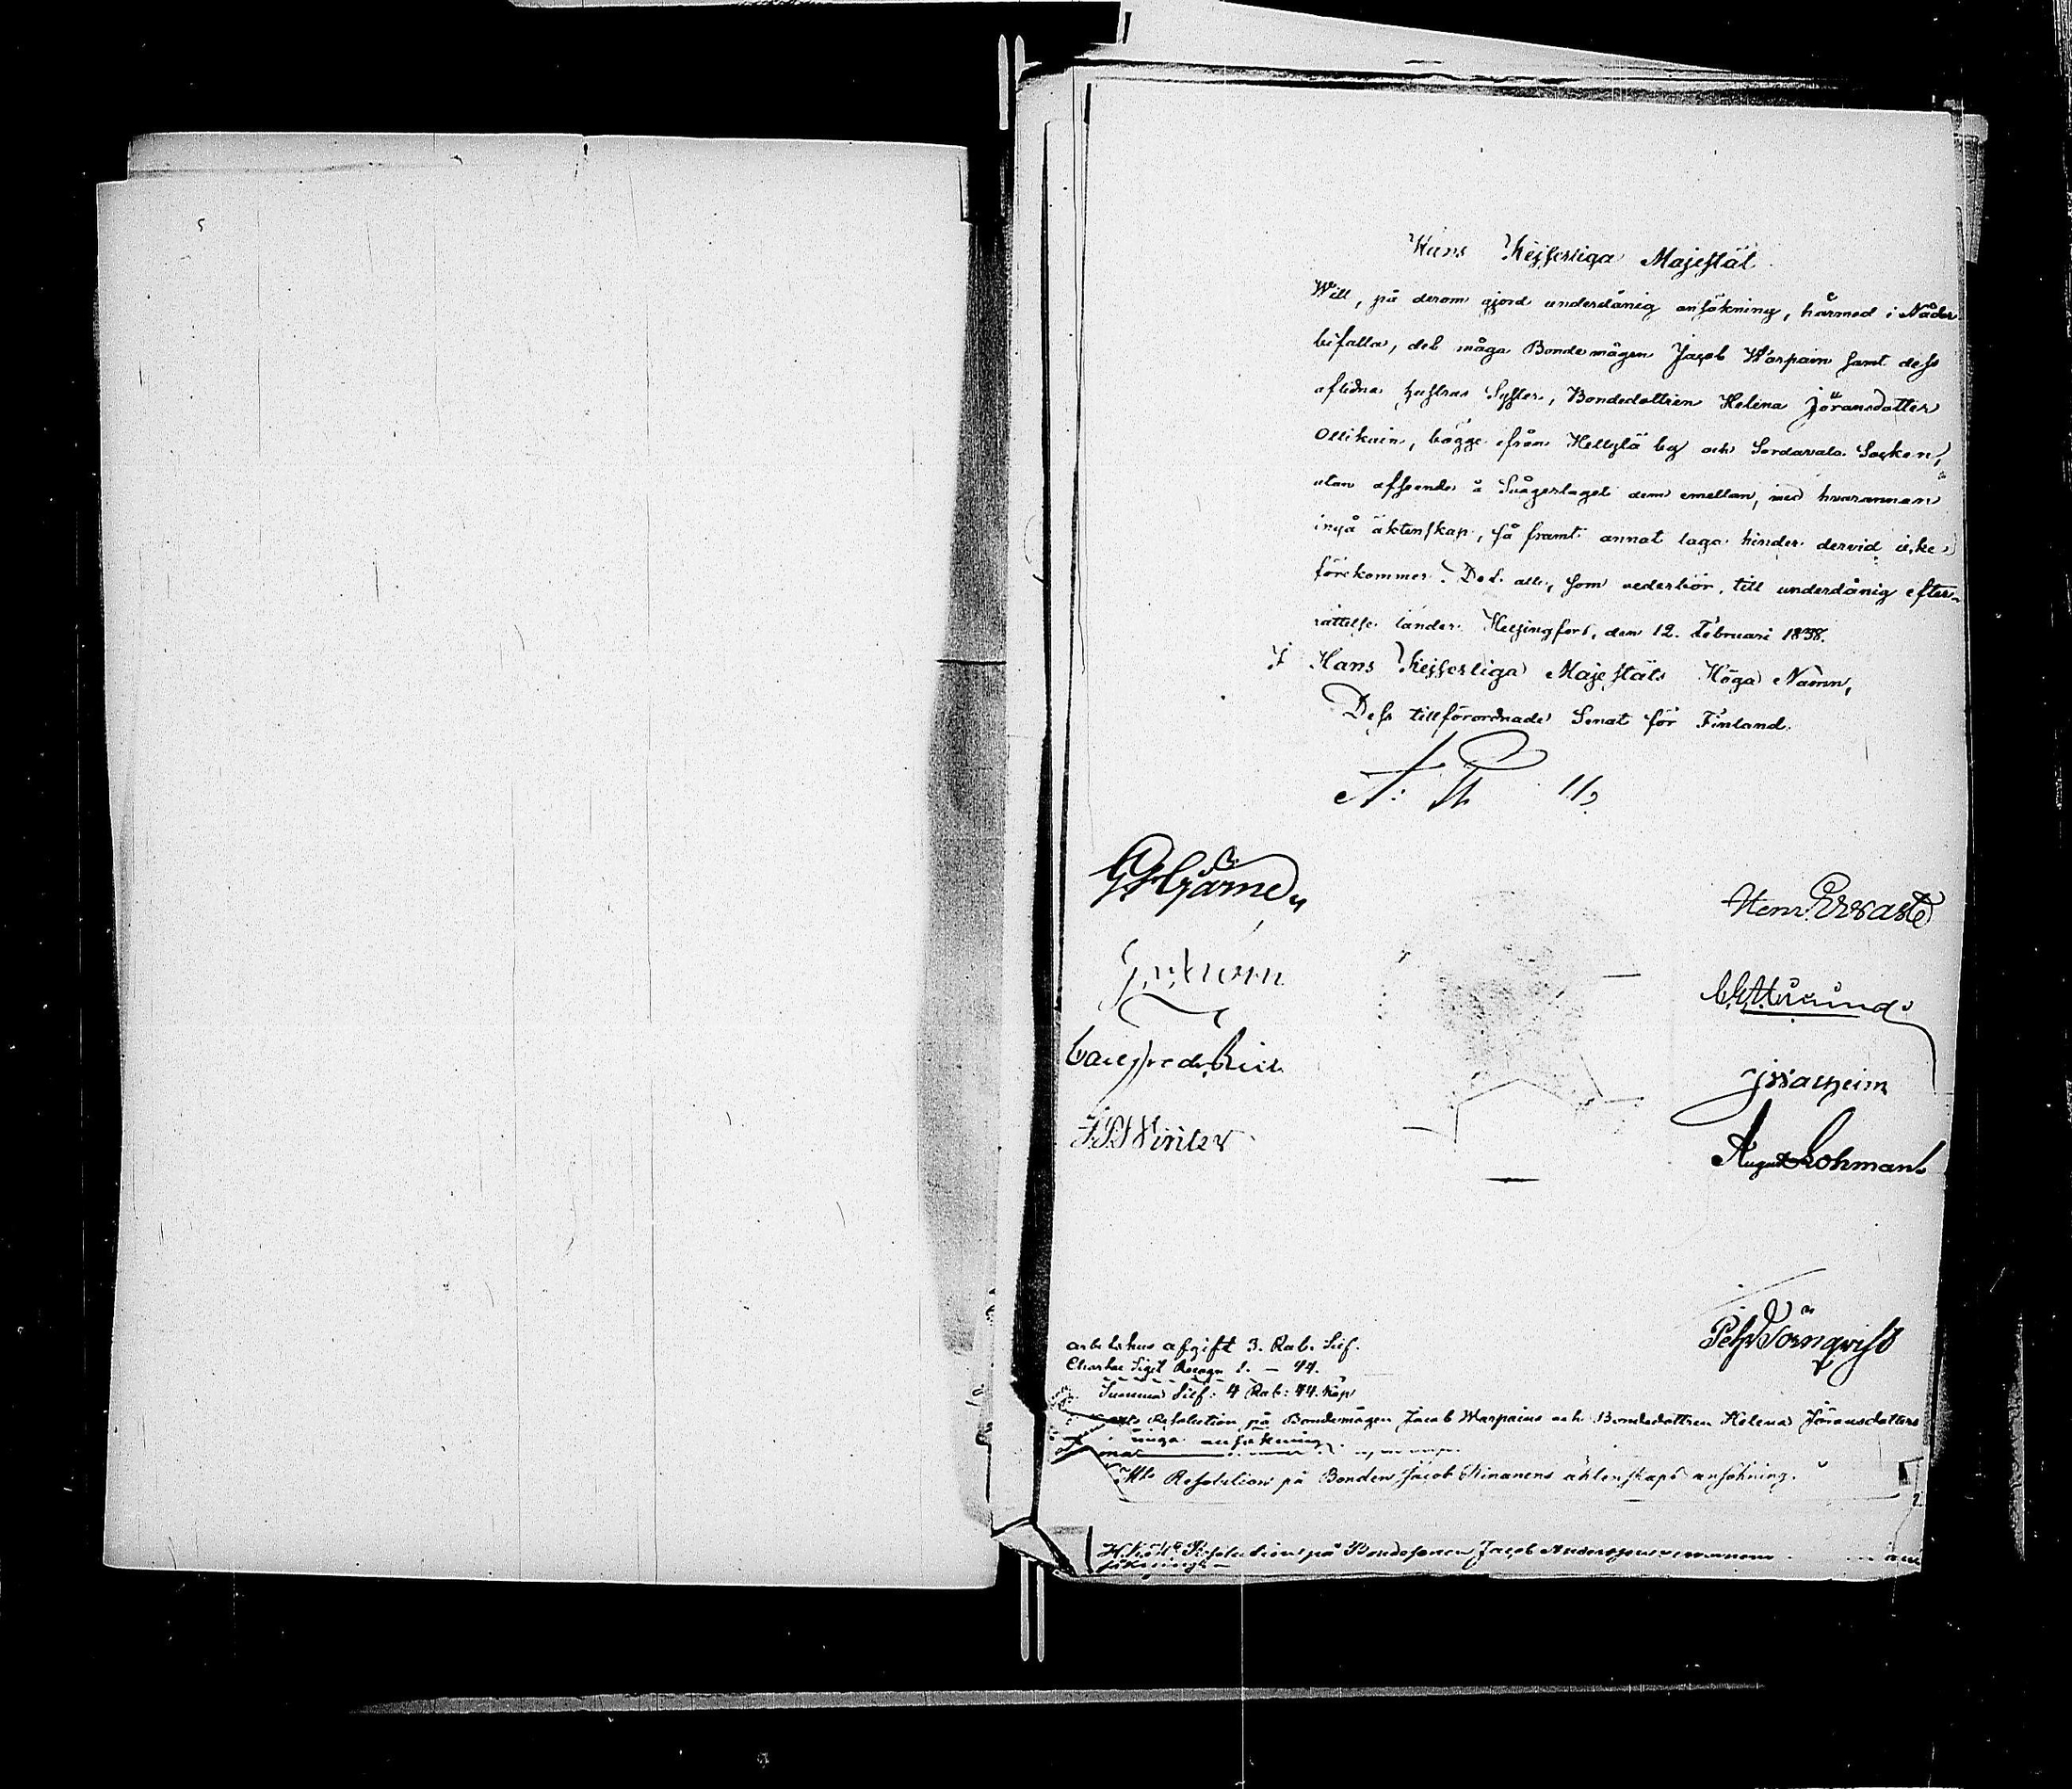 Hans Kejserliga Majestät
Will, på derom gjord underdånig ansökning, härmed i Nåder
bifalla, det måga Bondemågen Jacob Warpain samt dess
aflidna hustrus Syster, Bondedottren Helena Jöransdotter
Ollikain, bägge ifrån Hellylä by och Sordavala Socken,
utan afseende å Svågerlaget dem emellan, med hvarannan
ingå äktenskap, så framt annat laga hinder dervid icke
förekommer. Det alle, som vederbör, till underdånig efter-
rättelse länder. Helsingfors, den 12. Februari 1838.
I Hans Kejserliga Majestäts Höga Namn,
Dess tillförordnade Senat för Finland.
Hjärne
August Lohman
Carl Fredr.
Winter
Pehr Törnqvist
arbetshus afgift 3. Rub. Silf.
Charta Sigil. Recogn 1. — 44.
Summa Silf: 4 Rub: 44. Kop
Resolution på Bondemågen Jacob Warpains och Bondedottren Helena Jöransdotters
ansökning
Resolution på Bonden Jacob Kinanens äktenskaps ansökning.
Resolution på Bondesonen Jacob